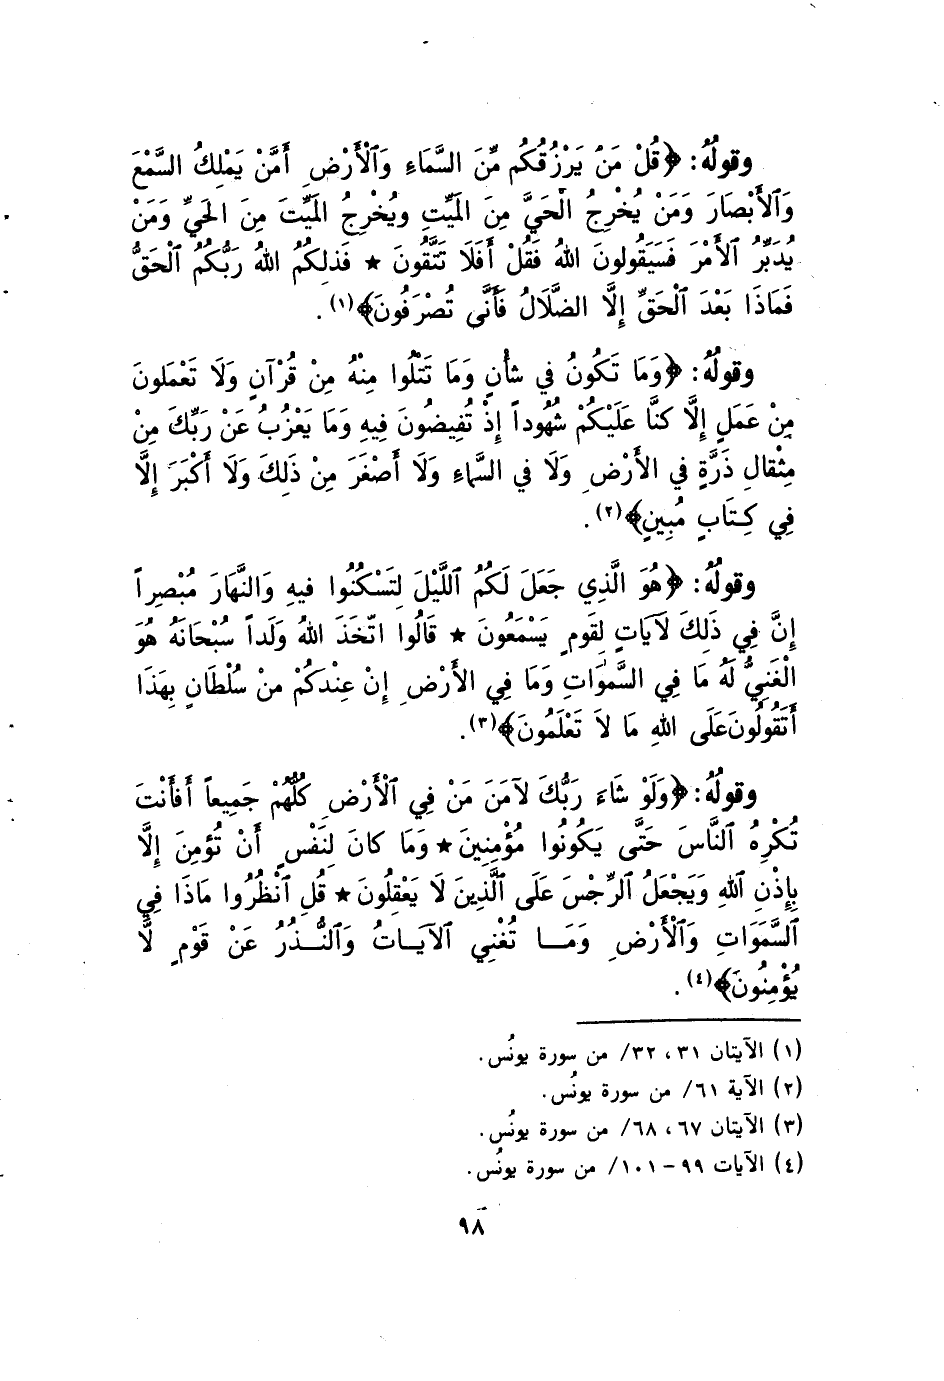 وقولُهُ: ﴿قُلْ مَنْ يَرْزُقُكُم مِّنَ السَّمَاءِ وَٱلْأَرْضِ أَمَّنْ يَمْلِكُ السَّمْعَ
وَٱلأَبْصَارَ وَمَنْ يُخْرِجُ الْحَيَّ مِنَ المَيِّتِ ويُخْرِجُ المَيِّتَ مِنَ الحَيِّ وَمَنْ
يُدَبِّرُ ٱلأَمْرَ فَسَيَقُولونَ اللهُ فَقُلْ أَفَلَا تَتَّقُونَ ★ فَذلِكُمُ اللهُ رَبُّكُمُ ٱلْحَقُّ
فَمَاذَا بَعْدَ ٱلْحَقِّ إِلَّا الضَّلَالُ فَأَنَّى تُصْرَفُونَ﴾(١).
وقولُهُ: ﴿وَمَا تَكُونُ في شأْنٍ وَمَا تَتْلُوا مِنْهُ مِنْ قُرْآنٍ وَلَا تَعْمَلونَ
مِنْ عَمَلٍ إِلَّا كنَّا عَلَيْكُمْ شُهُوداً إِذْ تُفِيضُونَ فِيهِ وَمَا يَعْزُبُ عَنْ رَبِّكَ مِنْ
مِثْقالِ ذَرَّةٍ في الأَرْضِ وَلَا في السَّماءِ وَلَا أَصْغَرَ مِنْ ذَلِكَ وَلَا أَكْبَرَ إِلَّا
فِي كِتَابٍ مُبِينٍ﴾(٢).
وقولُهُ: ﴿هُوَ الَّذِي جَعَلَ لَكُمُ ٱللَّيْلَ لِتَسْكُنُوا فيهِ وَالنَّهَارَ مُبْصِراً
إِنَّ فِي ذَلِكَ لَآيَاتٍ لِقَومٍ يَسْمَعُونَ ★ قَالُوا اتَّخَذَ اللهُ وَلَداً سُبْحَانَهُ هُوَ
الْغَنِيُّ لَهُ مَا فِي السَّمٰوَاتِ وَمَا فِي الأَرْضِ إِنْ عِنْدَكُمْ منْ سُلْطَانٍ بِهَذَا
أَتَقُولُونَ عَلَى اللهِ مَا لاَ تَعْلَمُونَ﴾(٣).
وقولُهُ: ﴿وَلَوْ شَاءَ رَبُّكَ لآمَنَ مَنْ فِي ٱلْأَرْضِ كُلُّهُمْ جَمِيعاً أَفأَنْتَ
تُكْرِهُ ٱلنَّاسَ حَتَّى يَكُونُوا مُؤْمِنِينَ ★ وَمَا كانَ لِنَفْسٍ أَنْ تُؤمِنَ إِلَّا
بِإِذْنِ ٱللهِ وَيَجْعَلُ ٱلرِّجْسَ عَلَى ٱلَّذِينَ لَا يَعْقِلُونَ ★ قُلِ ٱنْظُرُوا مَاذَا فِي
ٱلسَّمَوَاتِ وَٱلْأَرْضِ وَمَـا تُغْنِي ٱلآيَـاتُ وَٱلنُّـذُرُ عَنْ قَوْمٍ لَّا
يُؤْمِنُونَ﴾(٤).
(١) الآيتان ٣١، ٣٢/ من سورة يونُس.
(٢) الآية ٦١/ من سورة يونُس.
(٣) الآيتان ٦٧، ٦٨/ من سورة يونُس.
(٤) الآيات ٩٩ - ١٠١/ من سورة يونُس.
٩٨